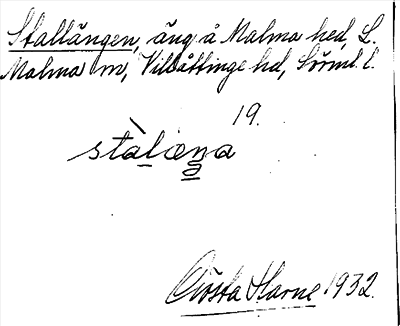 Stallängen, äng å Malma hed, L.
Malma sn, Villåttinge hd, Sörml. l.
19.
stàlæŋa
Gösta Starne 1932.